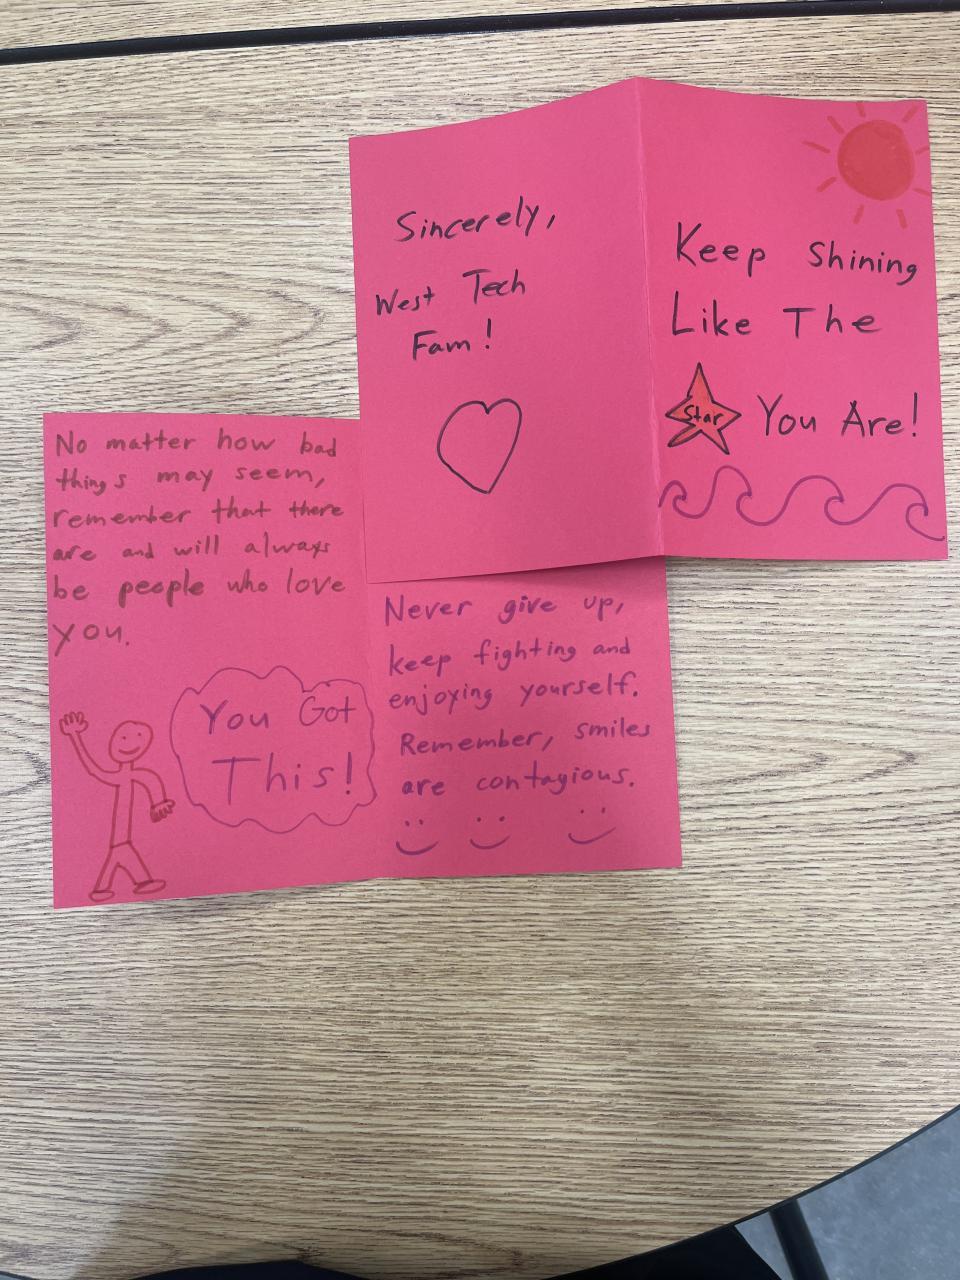 Sincerely,
West Tech
Fam!
Keep Shining
Like The
Star You Are!
No matter how bad
things may seem,
remember that there
are and will always
be people who love
you.
You Got
This!
Never give up,
keep fighting and
enjoying yourself.
Remember, smiles
are contagious.